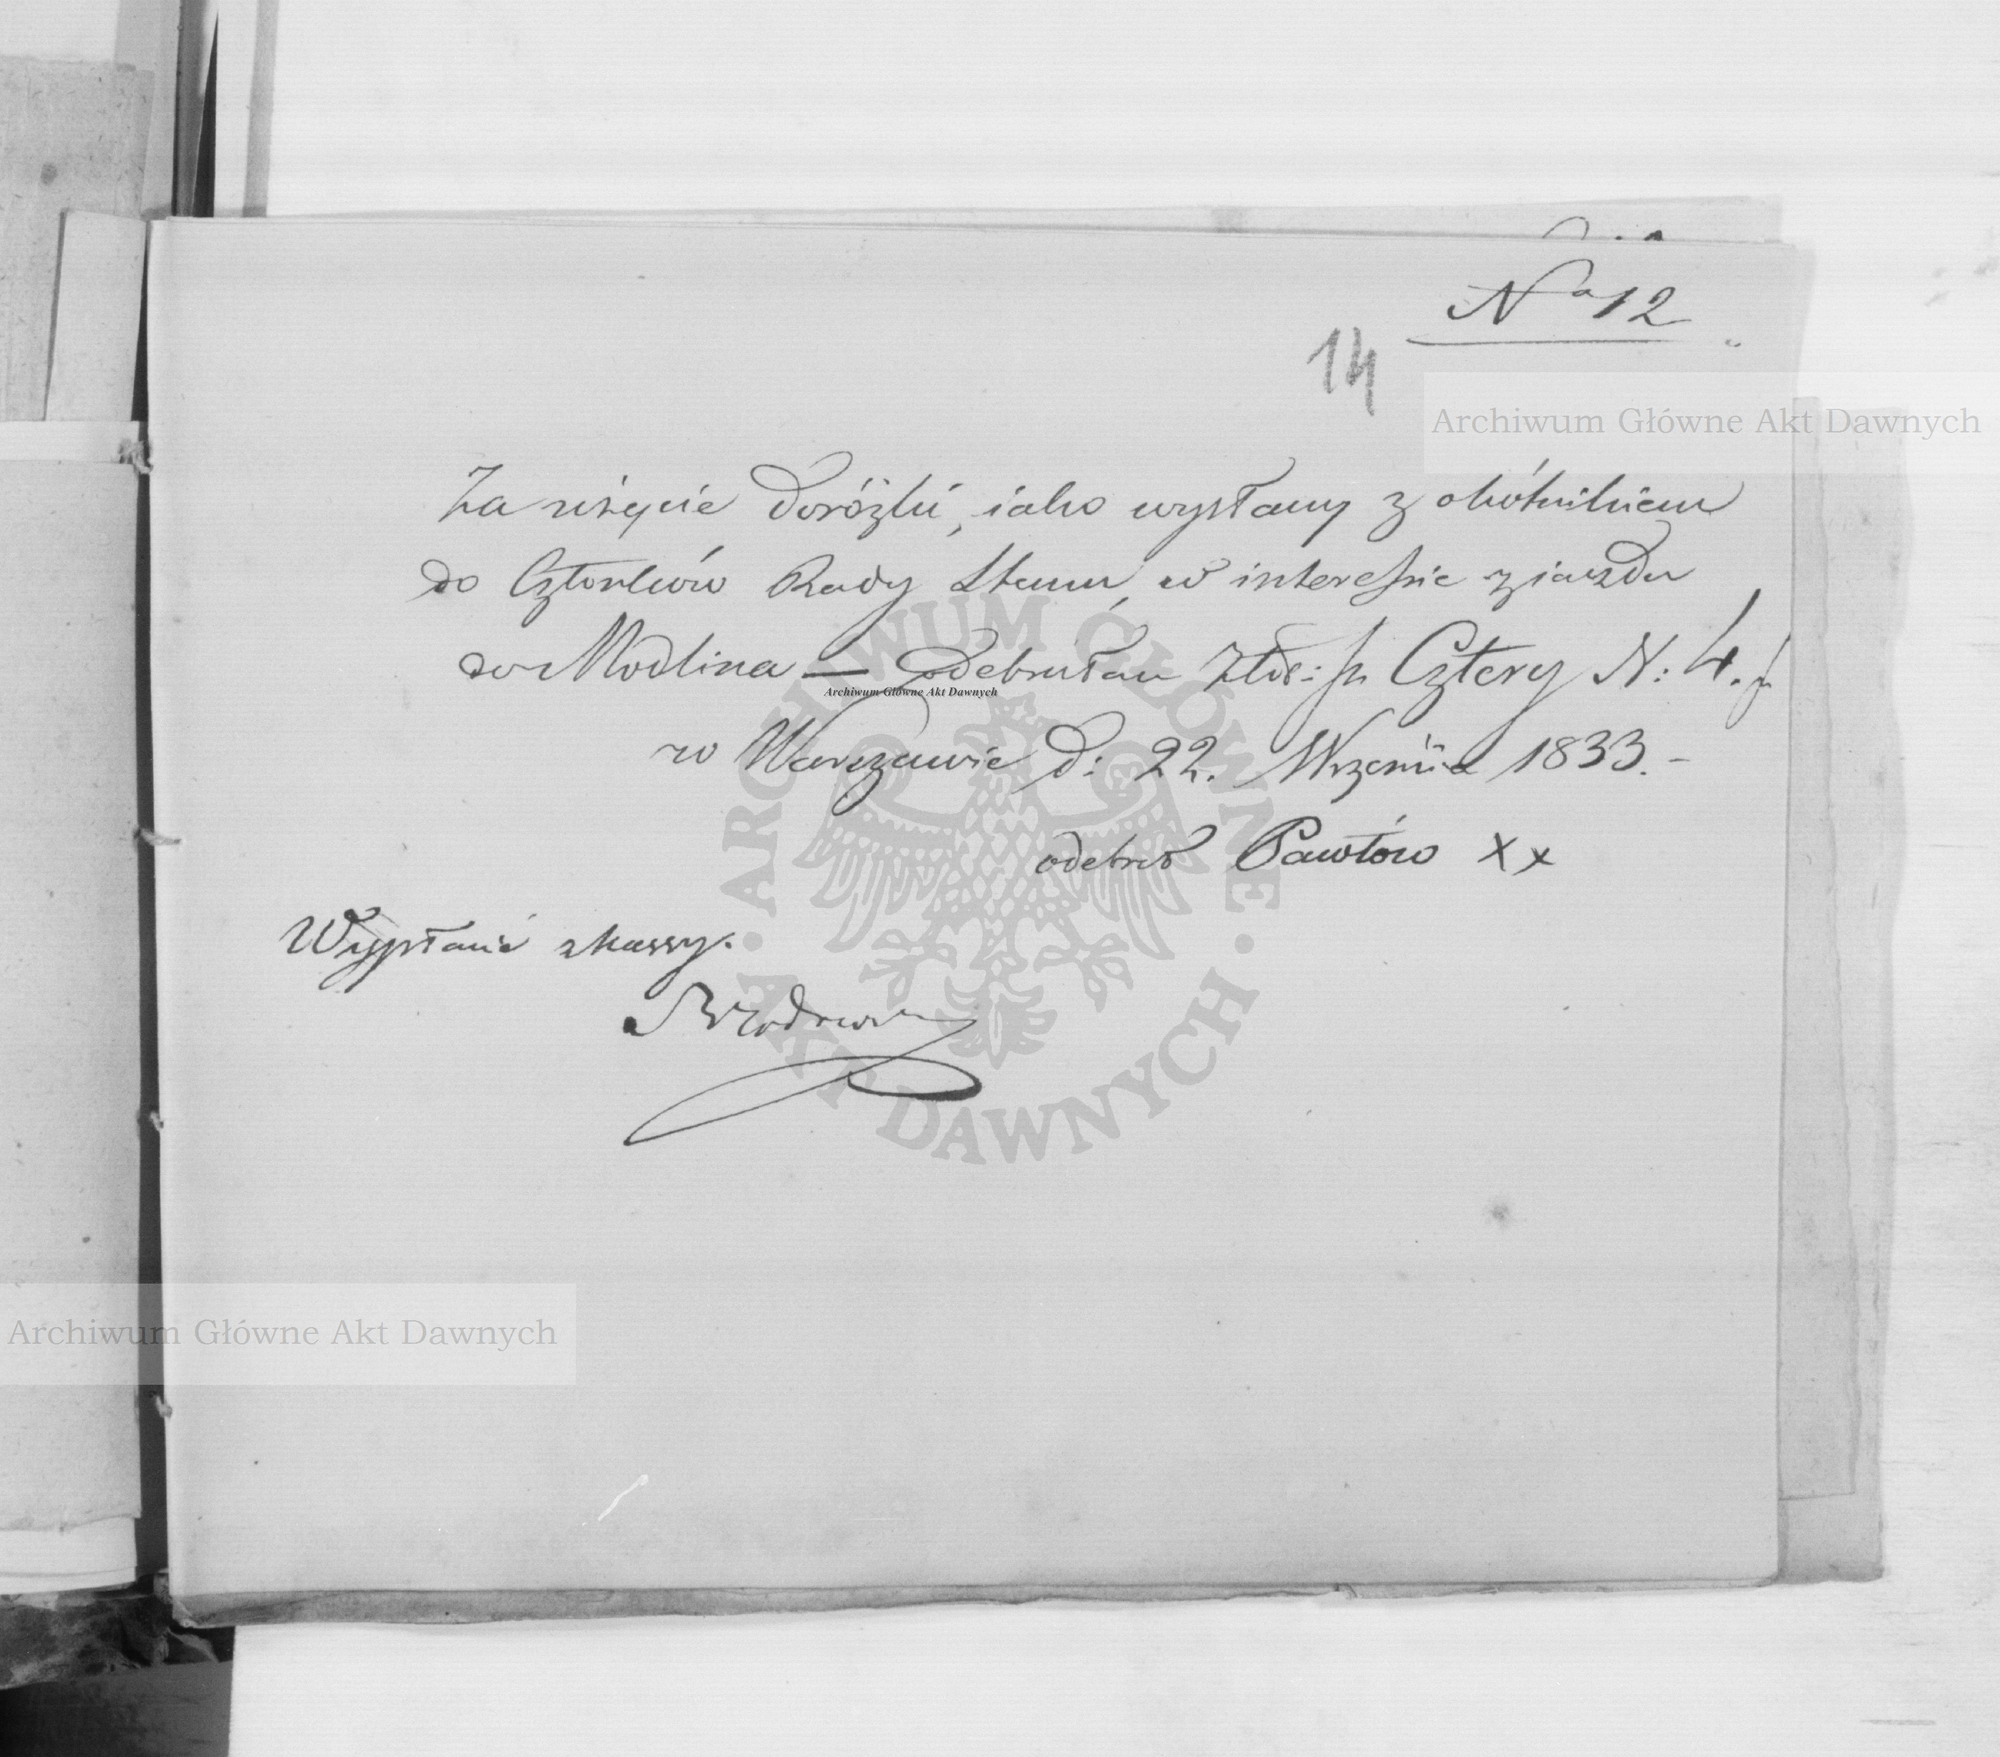 No 12
14
Archiwum Główne Akt Dawnych
Za użycie Doróżki, iako wysłany z okólnikiem
do Członków Rady Stanu, w interessie zjazdu
do Modlina — Odebrałem Złot: p. Cztery N: 4.
Archiwum Główne Akt Dawnych
w Warszawie d: 22. Września 1833. -
odebrał Pawłów x x
Wypłacić z kassy.
ARCHIWUM GŁÓWNE · AKT DAWNYCH ·
Archiwum Główne Akt Dawnych